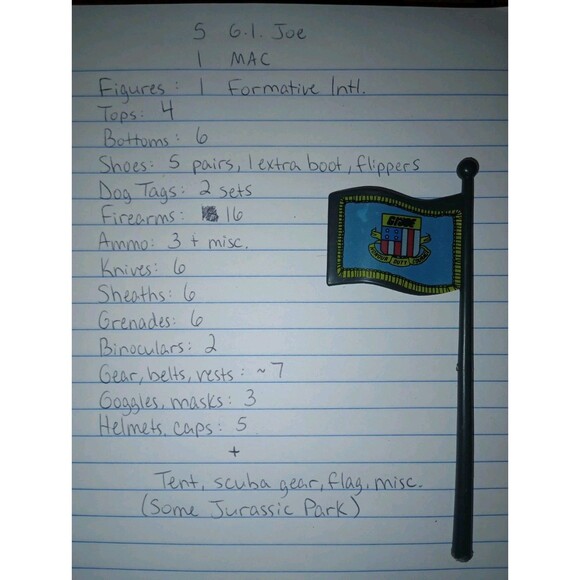 5 G.I. Joe
1 MAC
Figures: 1 Formative Intl.
Tops: 4
Bottoms: 6
Shoes: 5 pairs, 1 extra boot, flippers
Dog Tags: 2 sets
Firearms: 16
Ammo: 3 + misc.
Knives: 6
Sheaths: 6
Grenades: 6
Binoculars: 2
Gear, belts, vests: ~7
Goggles, masks: 3
Helmets, caps: 5
+
Tent, scuba gear, flag, misc.
(Some Jurassic Park)
GI JOE